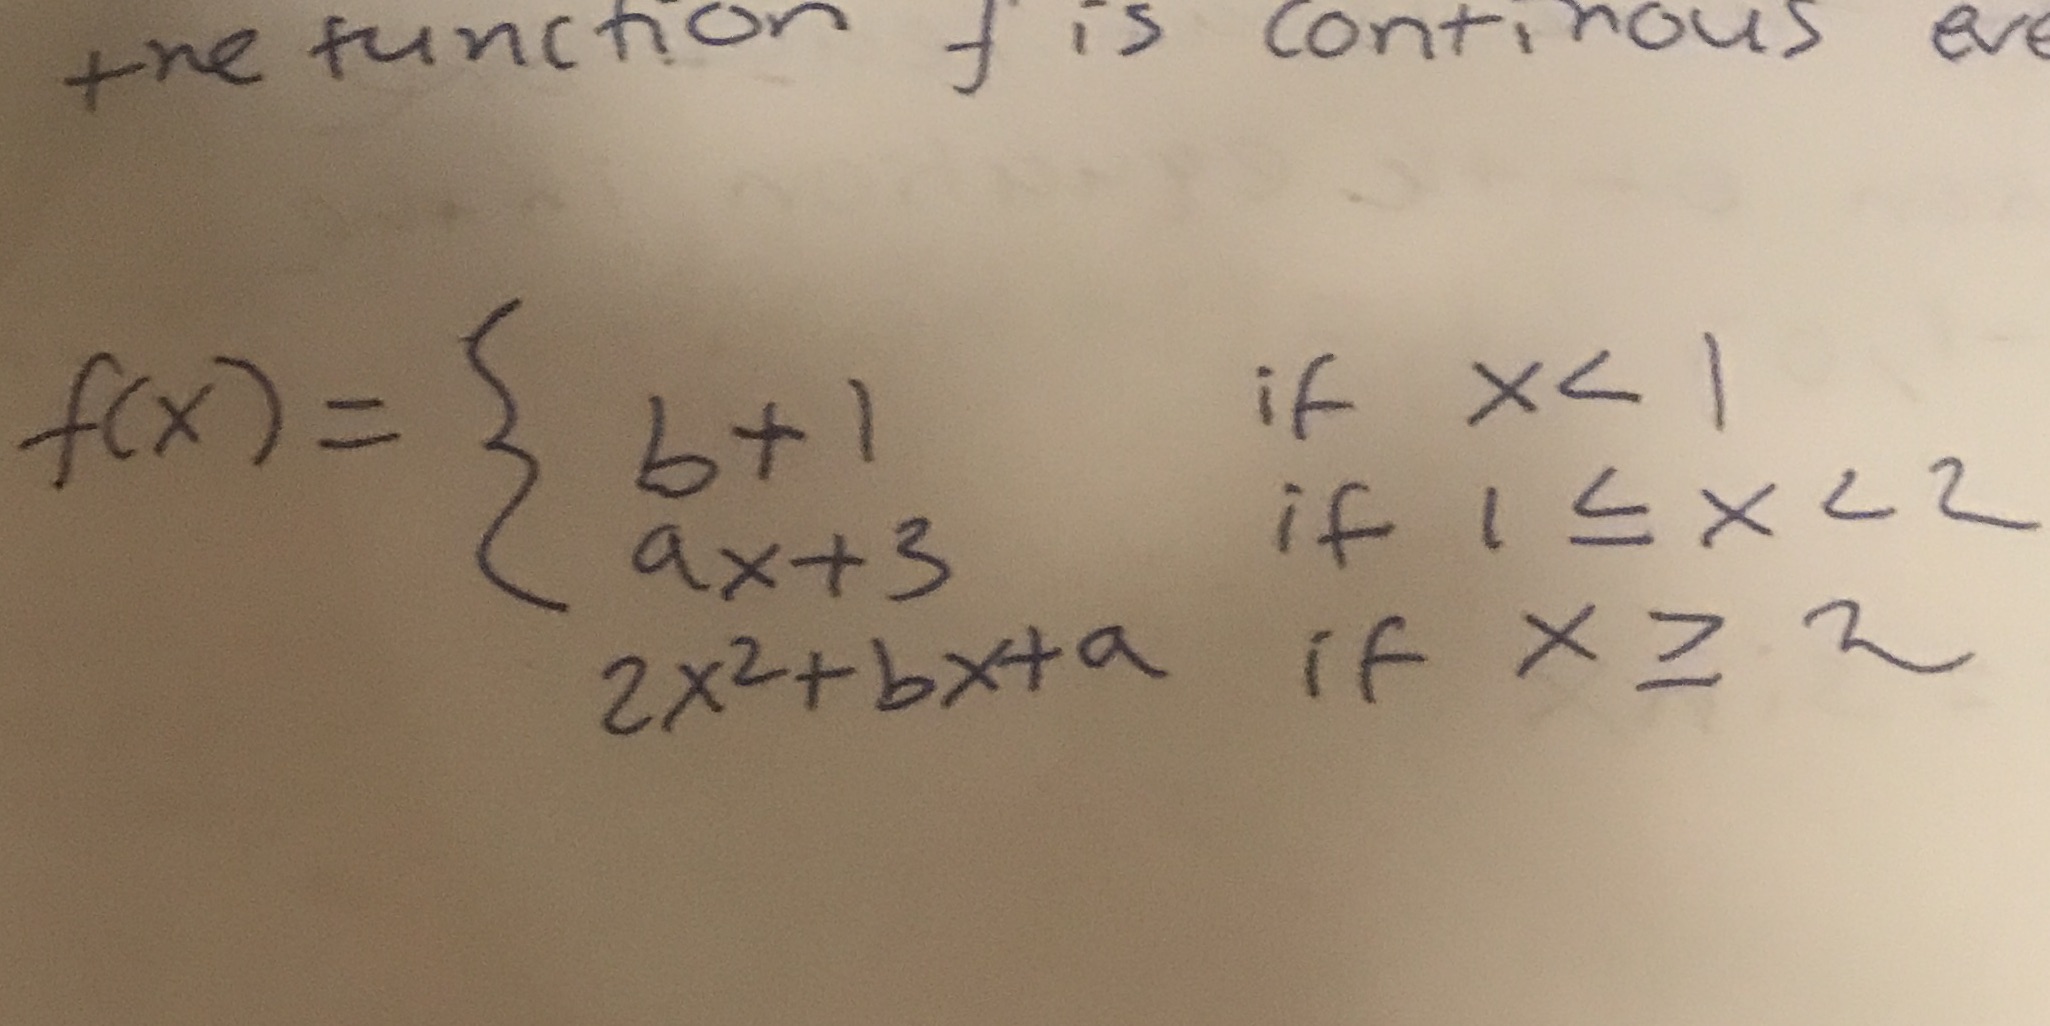 the function f is continous
f(x) = { b+1 if x < 1
ax+3 if 1 ≤ x < 2
2x²+bx+a if x ≥ 2